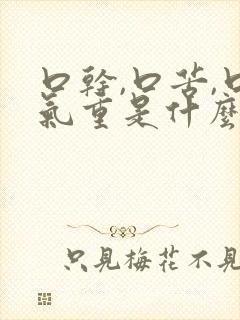 口幹,口苦,口
氣重是什麼
只見梅花不見